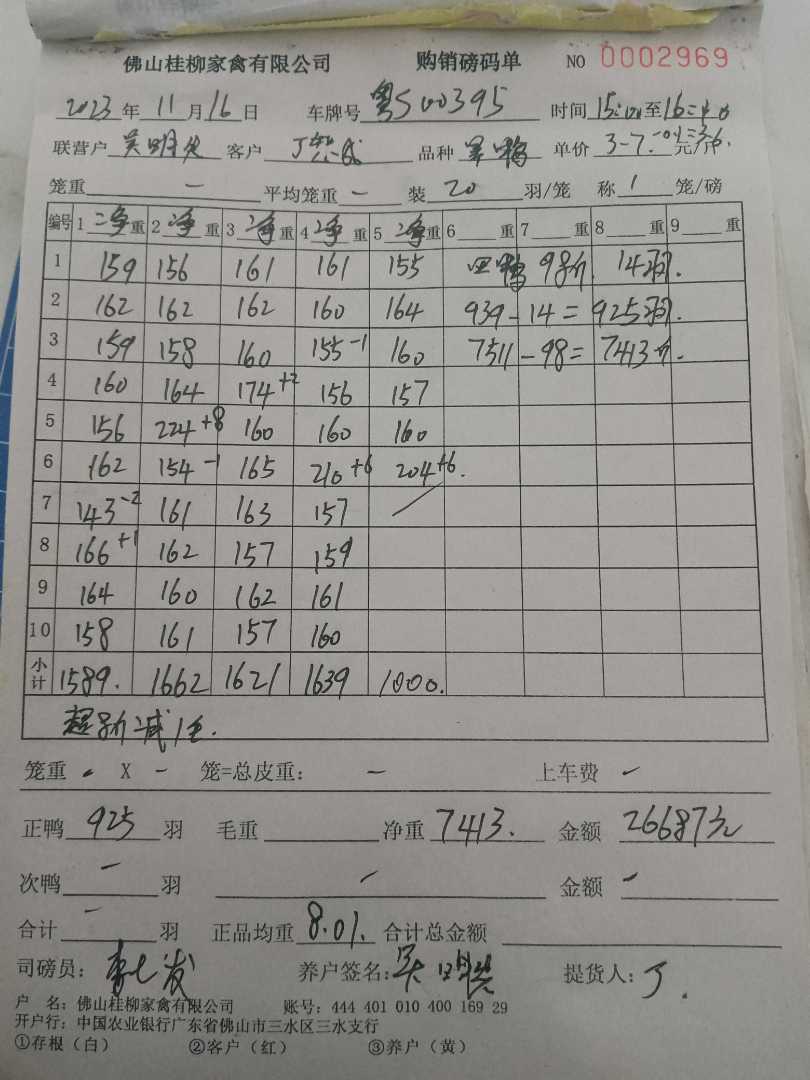 佛山桂柳家禽有限公司 购销磅码单 NO 0002969
2023年11月16日 车牌号 粤S00395 时间 15:00至16:40
联营户 吴明 客户 丁 品种 鸭 单价 3-7.-0.1=3.6元/斤
笼重 - 平均笼重 - 装 20 羽/笼 称 1 笼/磅
编号 1 净重 2 净重 3 净重 4 净重 5 净重 6 重 7 重 8 重 9 重
1 159 156 161 161 155 鸭 98斤. 14羽.
2 162 162 162 160 164 939-14=925羽.
3 159 158 160 155-1 160 7511-98=7413斤.
4 160 164 174+2 156 157
5 156 224+8 160 160 160
6 162 154-1 165 210+6 204+6.
7 143-2 161 163 157
8 166+1 162 157 159
9 164 160 162 161
10 158 161 157 160
小计 1589. 1662 1621 1639 1000.
超 减
笼重 - X - 笼=总皮重: - 上车费 -
正鸭 925 羽 毛重 净重 7413. 金额 26687元
次鸭 - 羽 - 金额 -
合计 - 羽 正品均重 8.01. 合计总金额
司磅员: 李七发 养户签名: 吴明 提货人: 丁.
户 名: 佛山桂柳家禽有限公司 账号: 444 401 010 400 169 29
开户行: 中国农业银行广东省佛山市三水区三水支行
①存根(白) ②客户(红) ③养户(黄)